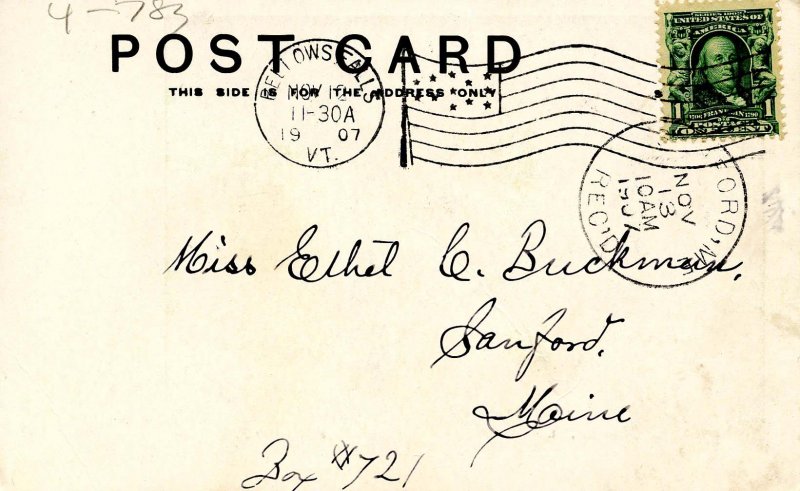 4-783
POST CARD
THIS SIDE IS FOR THE ADDRESS ONLY
BELLOWS FALLS
NOV 12
11-30A
1907
VT.
SERIES 1902
UNITED STATES OF
AMERICA
1706 FRANKLIN 1790
1 POSTAGE 1
ONE CENT
NOV
13
10AM
1907
REC'D
Miss Ethel C. Buckman,
Sanford,
Maine
Box #721